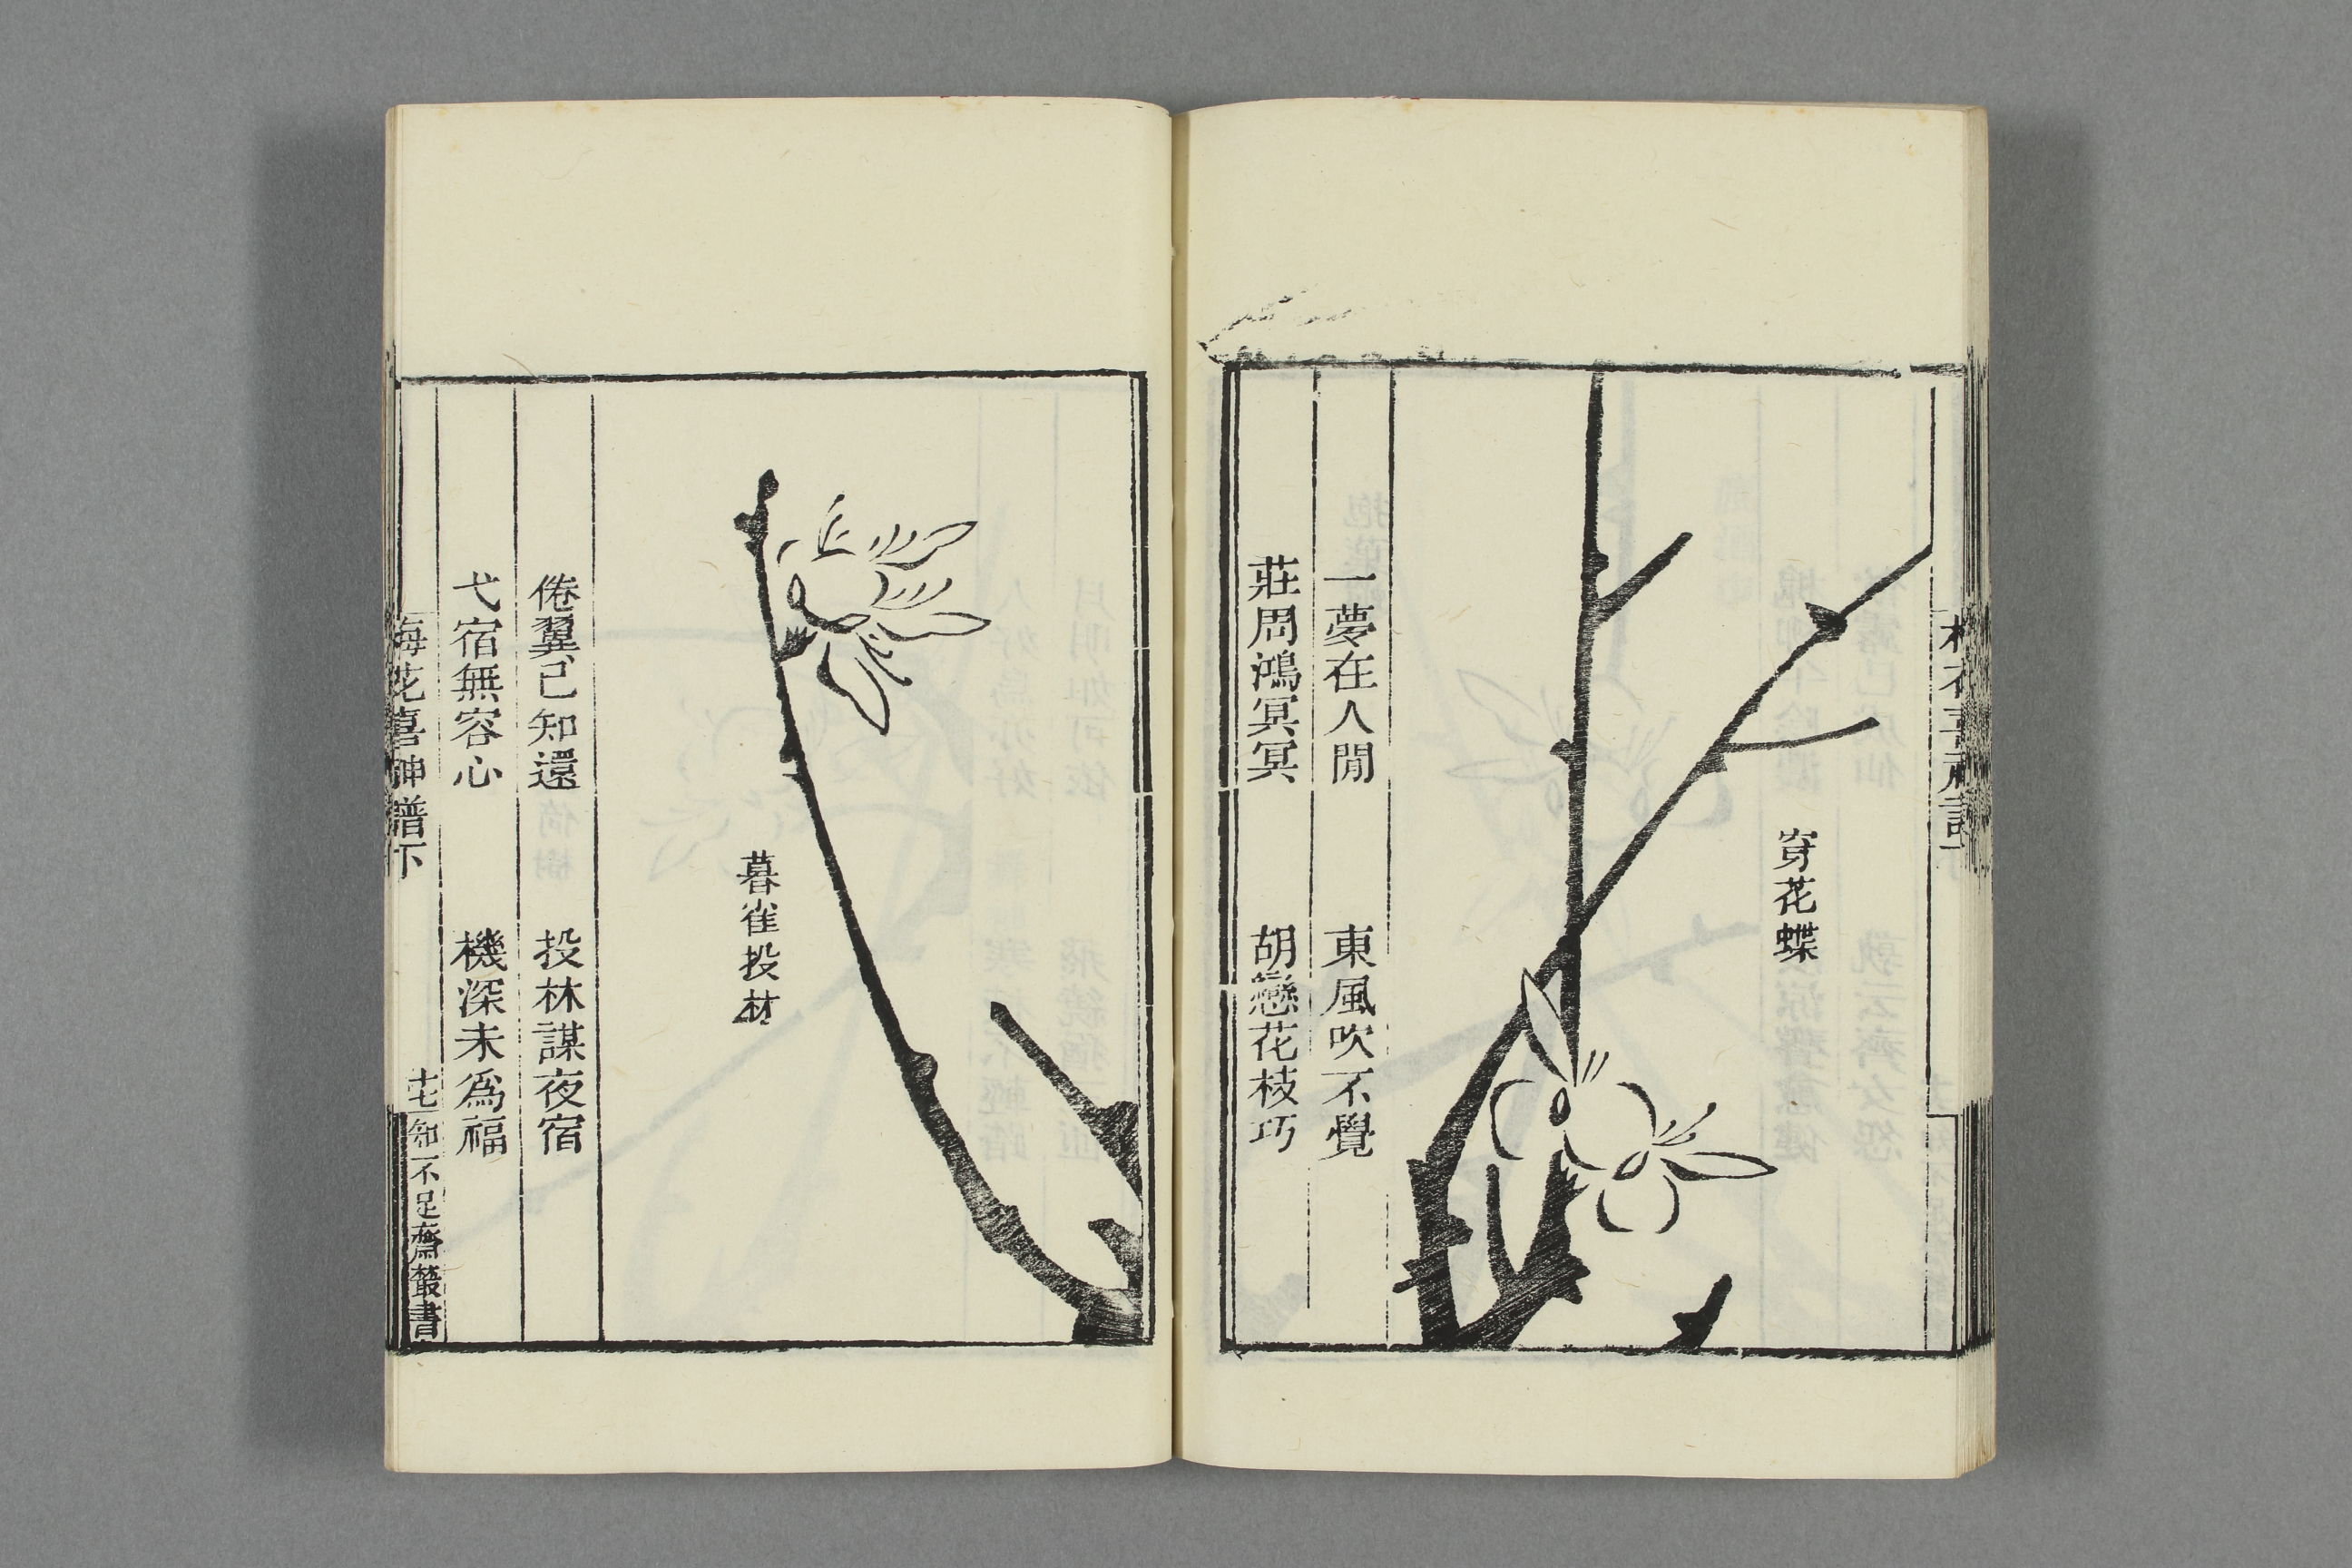 穿花蝶
一夢在人閒　東風吹不覺
莊周鴻冥冥　胡戀花枝巧
暮雀投林
倦翼已知還　投林謀夜宿
弋宿無容心　機深未爲福
梅花喜神譜下
知不足齋叢書